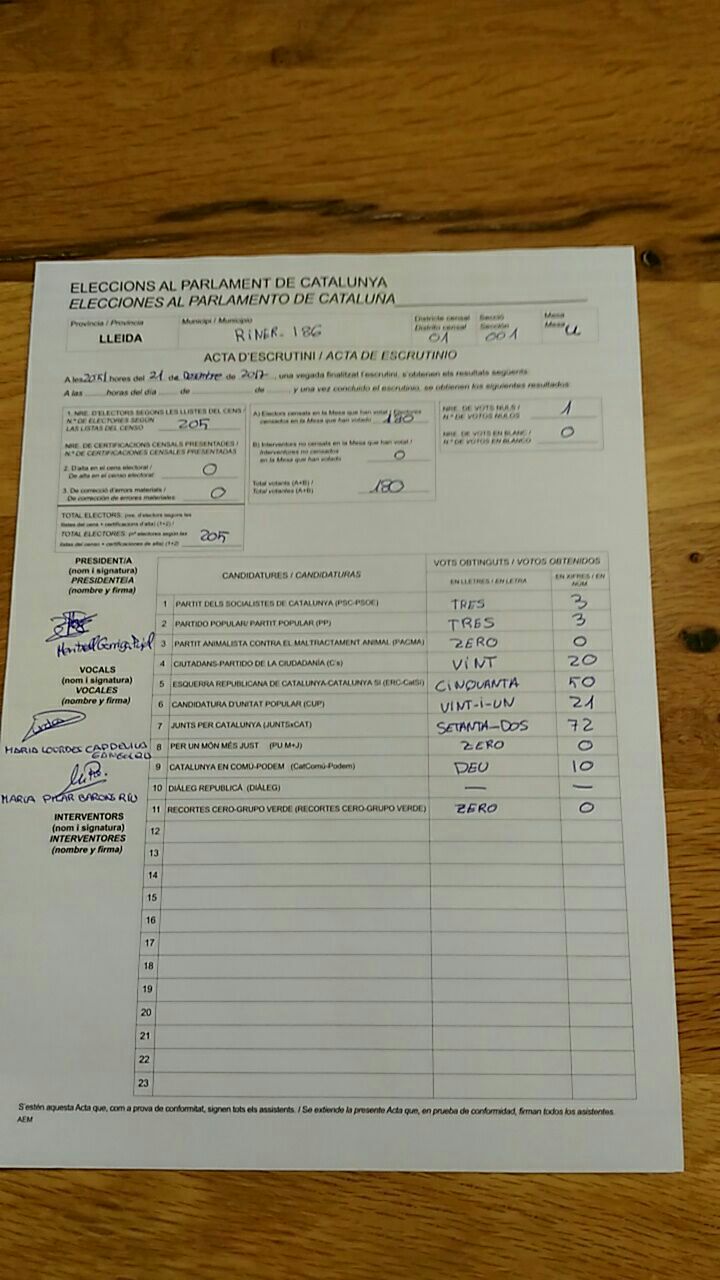 ELECCIONS AL PARLAMENT DE CATALUNYA
ELECCIONES AL PARLAMENTO DE CATALUÑA
Província / Provincia
LLEIDA
Municipi / Municipio
RINER - 186
Districte censal
Distrito censal
01
Secció
Sección
001
Mesa
Mesa U
ACTA D'ESCRUTINI / ACTA DE ESCRUTINIO
A les 2051 hores del 21 de Desembre de 2017, una vegada finalitzat l'escrutini, s'obtenen els resultats següents:
A las ........ horas del día ..... de .................. de ....... y una vez concluido el escrutinio, se obtienen los siguientes resultados:
1. NRE. D'ELECTORS SEGONS LES LLISTES DEL CENS /
N.º DE ELECTORES SEGÚN
LAS LISTAS DEL CENSO 205
NRE. DE CERTIFICACIONS CENSALS PRESENTADES /
N.º DE CERTIFICACIONES CENSALES PRESENTADAS
2. D'alta en el cens electoral /
De alta en el censo electoral: 0
3. De correcció d'errors materials /
De corrección de errores materiales: 0
TOTAL ELECTORS: pre. d'electors segons les
llistes del cens + certificacions d'alta) (1+2) /
TOTAL ELECTORES: nº electores según las
listas del censo + certificaciones de alta) (1+2) 205
A) Electors censats en la Mesa que han votat / Electores
censados en la Mesa que han votado 180
B) Interventors no censats en la Mesa que han votat /
Interventores no censados
en la Mesa que han votado 0
Total votants (A+B) /
Total votantes (A+B) 180
NRE. DE VOTS NULS /
N.º DE VOTOS NULOS 1
NRE. DE VOTS EN BLANC /
N.º DE VOTOS EN BLANCO 0
PRESIDENT/A
(nom i signatura)
PRESIDENTE/A
(nombre y firma)
VOCALS
(nom i signatura)
VOCALES
(nombre y firma)
MARIA LOURDES CAPDEVILA
MARIA PILAR BARONS RIU
INTERVENTORS
(nom i signatura)
INTERVENTORES
(nombre y firma)
CANDIDATURES / CANDIDATURAS
VOTS OBTINGUTS / VOTOS OBTENIDOS
EN LLETRES / EN LETRA
EN XIFRES / EN NÚM
1 PARTIT DELS SOCIALISTES DE CATALUNYA (PSC-PSOE) TRES 3
2 PARTIDO POPULAR/ PARTIT POPULAR (PP) TRES 3
3 PARTIT ANIMALISTA CONTRA EL MALTRACTAMENT ANIMAL (PACMA) ZERO 0
4 CIUTADANS-PARTIDO DE LA CIUDADANÍA (C's) VINT 20
5 ESQUERRA REPUBLICANA DE CATALUNYA-CATALUNYA SÍ (ERC-CatSí) CINQUANTA 50
6 CANDIDATURA D'UNITAT POPULAR (CUP) VINT-I-UN 21
7 JUNTS PER CATALUNYA (JUNTSxCAT) SETANTA-DOS 72
8 PER UN MÓN MÉS JUST (PU M+J) ZERO 0
9 CATALUNYA EN COMÚ-PODEM (CatComú-Podem) DEU 10
10 DIÀLEG REPUBLICÀ (DIÀLEG) — —
11 RECORTES CERO-GRUPO VERDE (RECORTES CERO-GRUPO VERDE) ZERO 0
12
13
14
15
16
17
18
19
20
21
22
23
S'estén aquesta Acta que, com a prova de conformitat, signen tots els assistents. / Se extiende la presente Acta que, en prueba de conformidad, firman todos los asistentes.
AEM